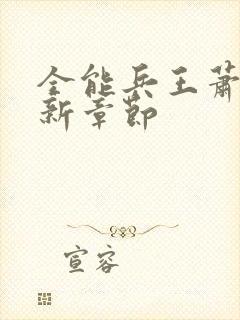 全能兵王萧
新章节
宣容